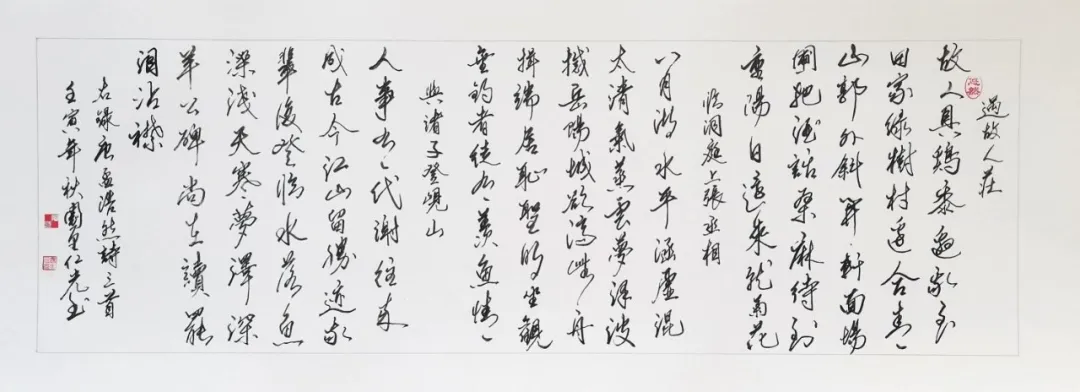 過故人莊
故人具鸡黍邀我至
田家绿樹村邊合青
山郭外斜開軒面場
圃把酒話桑麻待到
重陽日還来就菊花
临洞庭上張丞相
八月湖水平涵虛混
太清氣蒸雲夢泽波
撼岳陽城欲濟無舟
楫端居恥聖明坐觀
垂钓者徒有羡魚情
與諸子登岘山
人事有代謝往来
成古今江山留勝迹我
輩復登临水落魚
梁浅天寒夢澤深
羊公碑尚在讀罷
泪沾襟
右録唐孟浩然詩三首
壬寅年秋